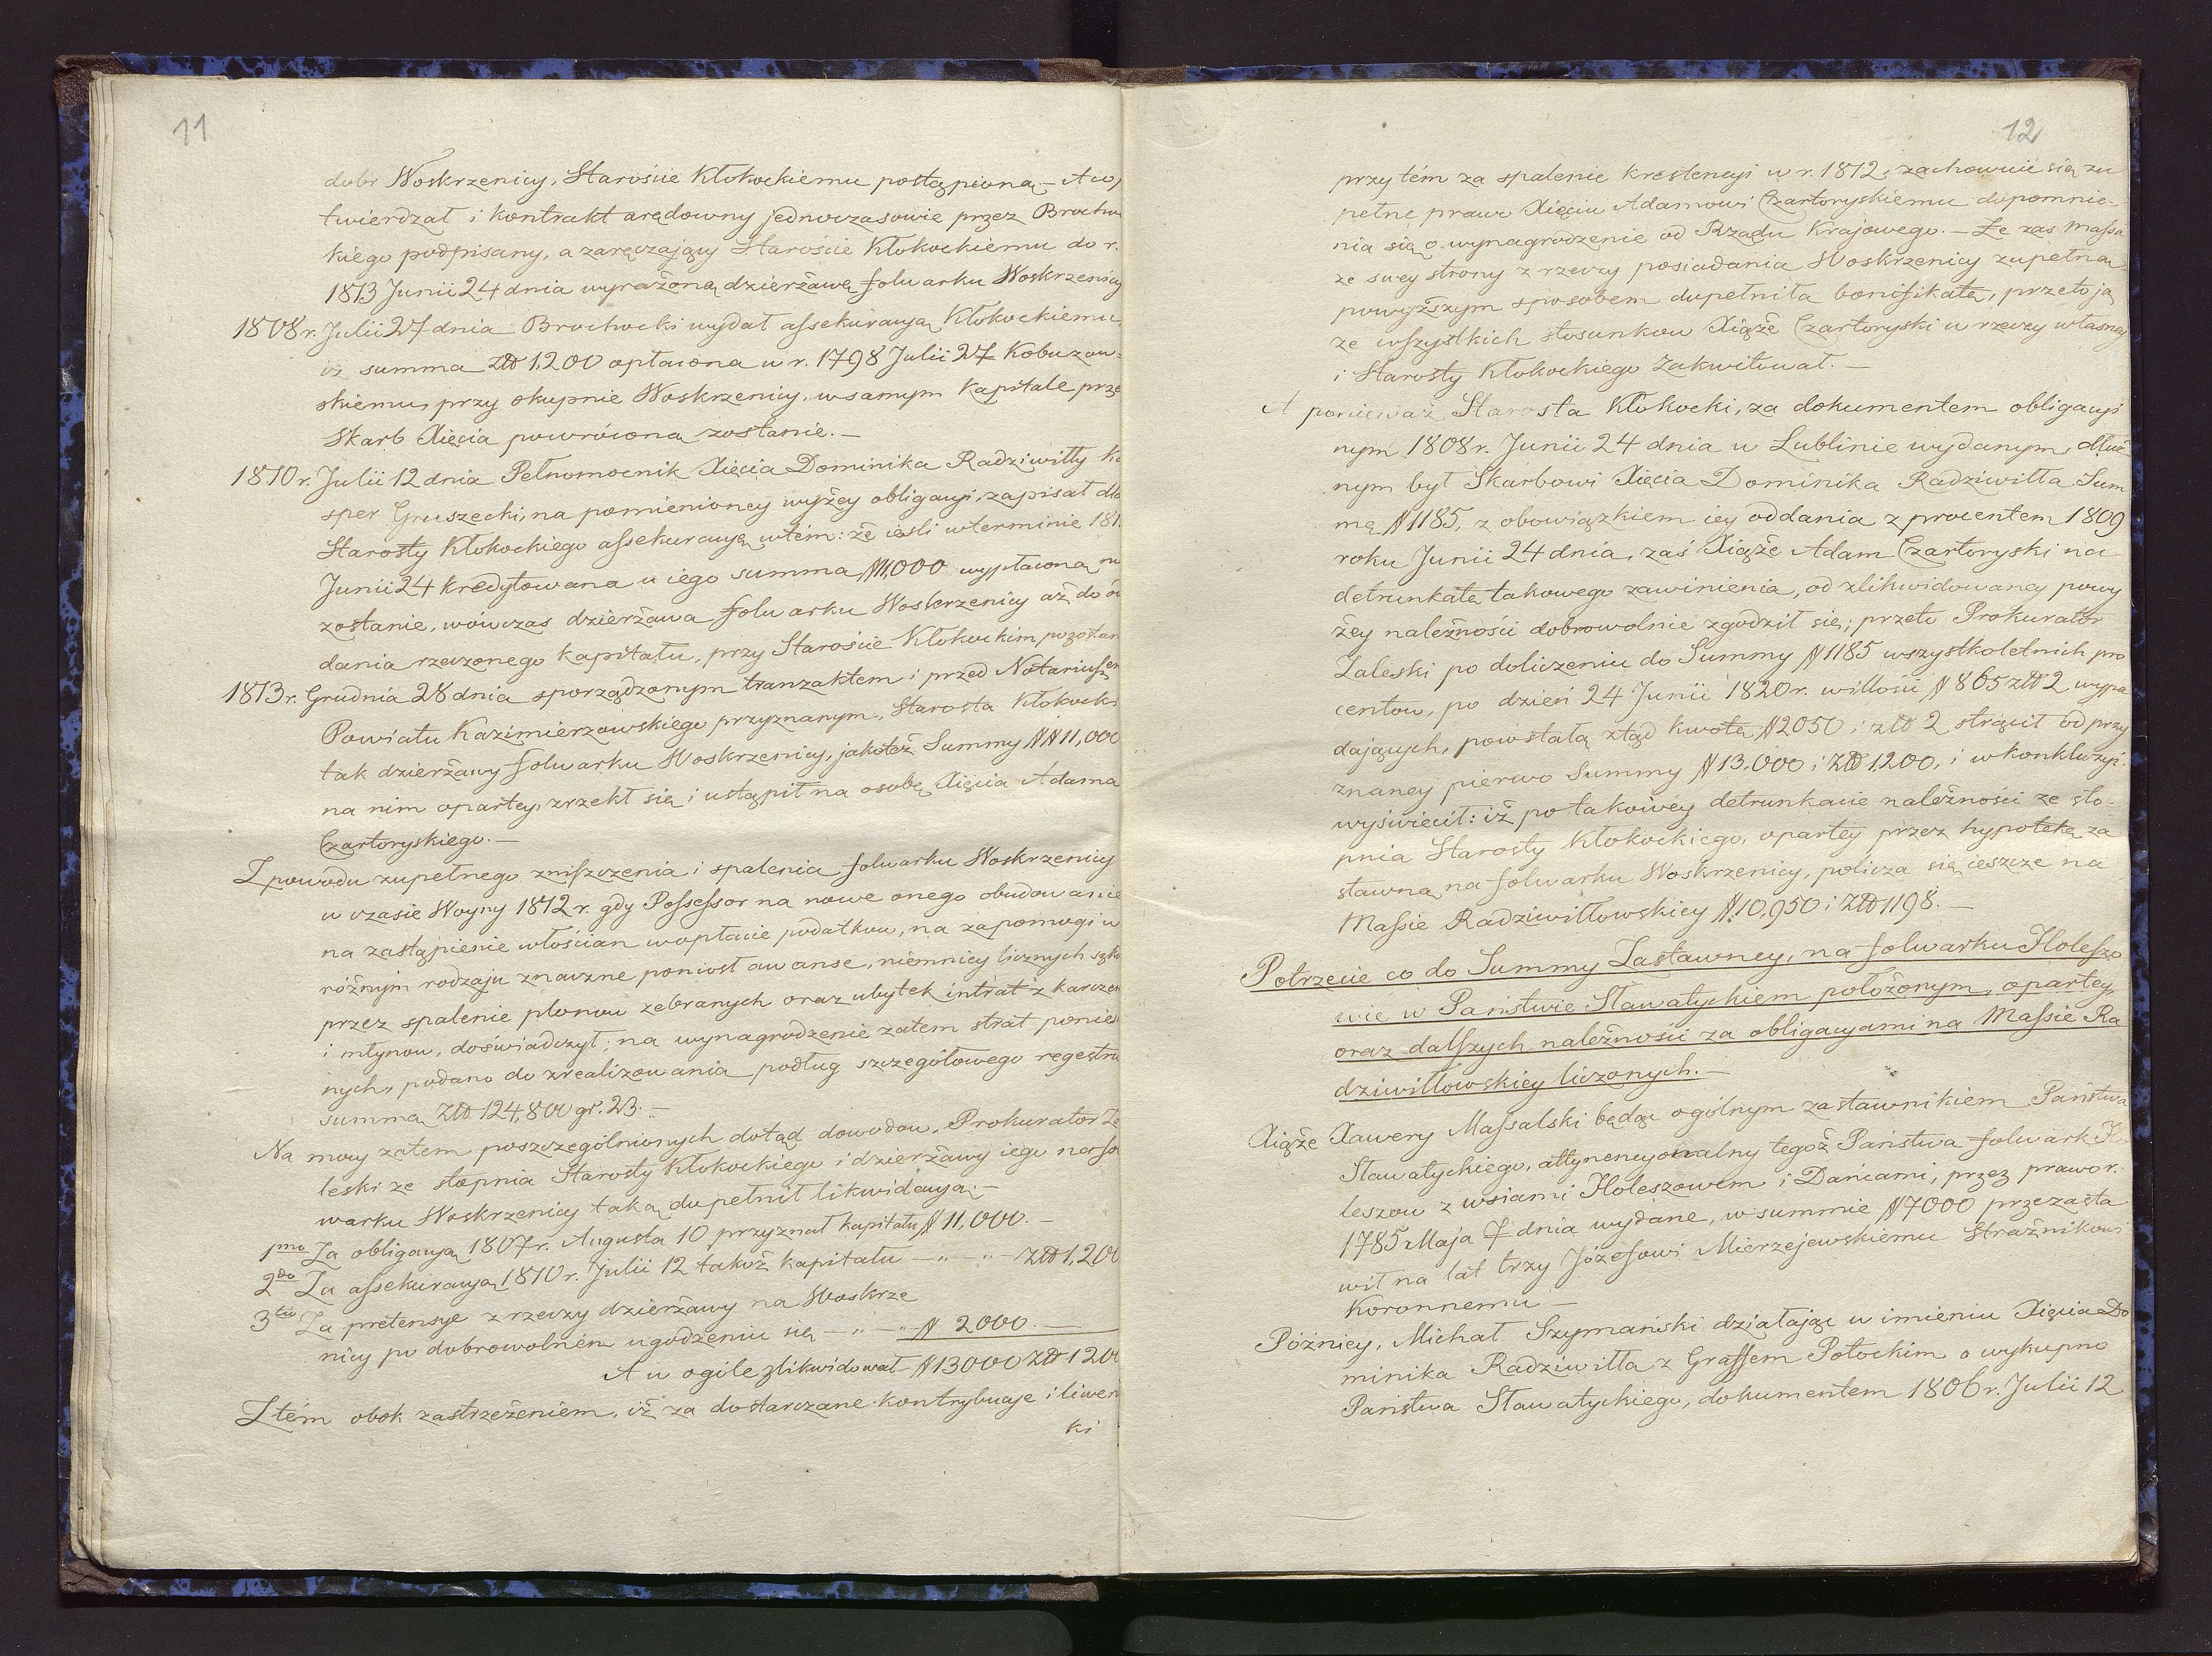 11
dobr Woskrzenicy, Starościе Kłokockiemu postąpioną. – A co
twierdzał i kontrakt arędowny jednoczasowie przez Brocho
kiego podpisany, a zaręczający Starościе Kłokockiemu do r.
1813 Junii 24 dnia wyrażoną dzierżawę folwarku Woskrzenicy
1808 r. Julii 27 dnia Brochocki wydał assekuracyą Kłokockiemu,
iż summa Złt 1,200 opłacona w r. 1798 Julii 27 Kobuzow-
skiemu, przy okupnie Woskrzenicy, w samym Kapitale prze
Skarb Xięcia powróconą zostanie. –
1810 r. Julii 12 dnia Pełnomocnik Xięcia Dominika Radziwiłły Ka
sper Gruszecki, na pomienioney wyżey obligacyi, zapisał dla
Starosty Kłokockiego assekuracyą w tém: że ieśli w terminie 181
Junii 24 kredytowana u iego summa # 11,000 wypłaconą nie
zostanie, wówczas dzierżawa folwarku Woskrzenicy aż do od
dania rzeczonego kapitału, przy Starościе Kłokockim pozostan
1813 r. Grudnia 28 dnia sporządzonym tranzaktem i przed Notariusem
Powiatu Kazimierzowskiego przyznanym, Starosta Kłokocki
tak dzierżawy folwarku Woskrzenicy, jakoteż Summy ## 11,000
na nim opartey, zrzekł się i ustąpił na osobę Xięcia Adama
Czartoryskiego. –
Z powodu zupełnego zniszczenia i spalenia folwarku Woskrzenicy
w czasie Woyny 1812 r. gdy Possessor na nowe onego obudowanie
na zastąpienie włościan w opłacie podatkow, na zapomogi w
różnym rodzaju znaczne poniosł awanse, niemniey licznych szko
przez spalenie plonow zebranych oraz ubytek intrat z karczem
i młynow, doświadczył; na wynagrodzenie zatem strat ponies
nych, podano do zrealizowania podług szczegółowego regestru
summa Złt 124,800 gr. 23. –
Na mocy zatem poszczególnionych dotąd dowodow, Prokurator Za
leski ze stopnia Starosty Kłokockiego i dzierżawy iego na fol
warku Woskrzenicy taką dopełnił likwidacyą: –
1mo Za obligacyą 1807 r. Augusta 10 przyznał kapitału # 11,000. –
2do Za assekuracyą 1810 r. Julii 12 takoż kapitału – „ – „ – Złt 1,200
3tio Za pretensye z rzeczy dzierżawy na Woskrze
nicy po dobrowolném ugodzeniu się – „ – „ – # 2000. –
A w ogóle zlikwidował – # 13000 Złt 1200
Z tém obok zastrzeżeniem, iż za dostarczane kontrybucye i liweru
ki
12
przytém za spalenie krestencyi w r. 1812, zachowuie się zu
pełne prawo Xięciu Adamowi Czartoryskiemu dopomnie-
nia się o wynagrodzenie od Rządu Krajowego. – Że zas Massa
ze swey strony z rzeczy posiadania Woskrzenicy zupełną
powyższym sposobem dopełniła bonifikatę, przeto ją
ze wszystkich stosunkow Xiąże Czartoryski w rzeczy własney
i Starosty Kłokockiego zakwitował. –
A ponieważ Starosta Kłokocki, za dokumentem obligacyi
nym 1808 r. Junii 24 dnia w Lublinie wydanym, dłuż-
nym był Skarbowi Xięcia Dominika Radziwiłła Sum
mę # 1185, z obowiązkiem iey oddania z procentem 1809
roku Junii 24 dnia, zaś Xiąże Adam Czartoryski na
detrunkatę takowego zawinienia, od zlikwidowaney powy
żey należności dobrowolnie zgodził się; przeto Prokurator
Zaleski po doliczeniu do Summy # 1185 wszystkoletnich pro
centow, po dzień 24 Junii 1820 r. w illości # 865 złt 2 wypa
dających, powstałą ztąd kwotę # 2050 i złt 2 strącił od przy
znaney pierwo Summy # 13,000 i Złt 1,200, i w konkluzyi
wyświecił: iż po takowey detrunkacie należności ze sto-
pnia Starosty Kłokockiego, opartey przez hypotekę za
stawną na folwarku Woskrzenicy, policza się ieszcze na
Massie Radziwiłłowskiey # 10,950 i Złt 1198. –
Potrzecie co do Summy Zastawney, na folwarku Holeszo
wie w Państwie Sławatyckiem położonym, opartey,
oraz dalszych należności za obligacyami na Massie Ra
dziwiłłowskiey liczonych. –
Xiąże Xawery Massalski będąc ogólnym zastawnikiem Państwa
Sławatyckiego, attynencyonalny tegoż Państwa folwark Ho
leszow z wsiami Holeszowem i Dańcami, przez prawo r.
1785 Maja 7 dnia wydane, w summie # 7000 przezasta
wił na lat trzy Józefowi Mierzejewskiemu Strażnikowi
Koronnemu –
Późniey, Michał Szymański działając w imieniu Xięcia Do
minika Radziwiłła z Graffem Potockim o wykupno
Państwa Sławatyckiego, dokumentem 1806 r. Julii 12